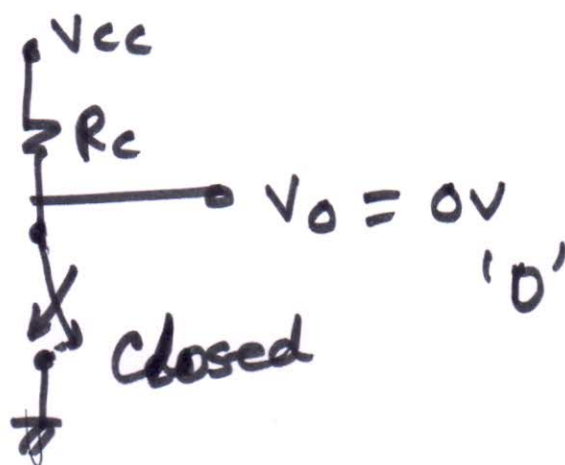 Vcc
Rc
Vo = 0V
'0'
Closed